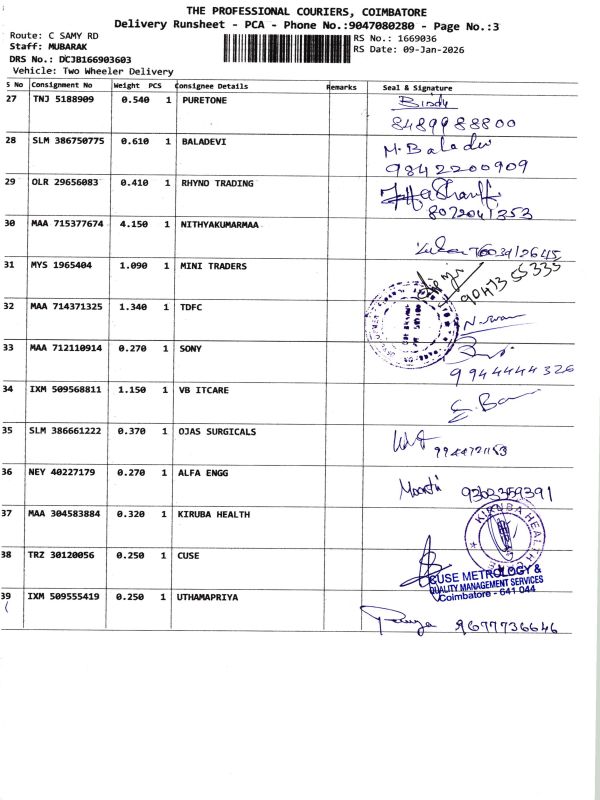 THE PROFESSIONAL COURIERS, COIMBATORE
Delivery Runsheet - PCA - Phone No.:9047080280 - Page No.:3
Route: C SAMY RD
RS No.: 1669036
Staff: MUBARAK
RS Date: 09-Jan-2026
DRS No.: DCJB166903603
Vehicle: Two Wheeler Delivery
S No Consignment No Weight PCS Consignee Details Remarks Seal & Signature
27 TNJ 5188909 0.540 1 PURETONE
8489988800
28 SLM 386750775 0.610 1 BALADEVI M. Baladevi
9842200909
29 OLR 29656083 0.410 1 RHYNO TRADING
30 MAA 715377674 4.150 1 NITHYAKUMARMAA
31 MYS 1965404 1.090 1 MINI TRADERS
32 MAA 714371325 1.340 1 TDFC
33 MAA 712110914 0.270 1 SONY
9944444326
34 IXM 509568811 1.150 1 VB ITCARE
35 SLM 386661222 0.370 1 OJAS SURGICALS
36 NEY 40227179 0.270 1 ALFA ENGG
9363359391
37 MAA 304583884 0.320 1 KIRUBA HEALTH KIRUBA HEALTH
38 TRZ 30120056 0.250 1 CUSE
CUSE METROLOGY &
QUALITY MANAGEMENT SERVICES
Coimbatore - 641 044
39 IXM 509555419 0.250 1 UTHAMAPRIYA
9677736646